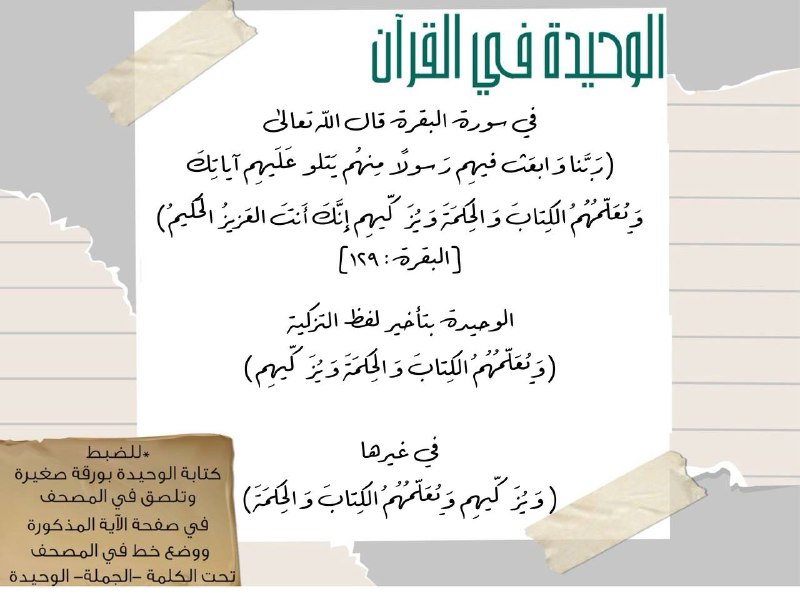 الوحيدة في القرآن
في سورة البقرة قال الله تعالى
(رَبَّنا وَابعَث فيهِم رَسولًا مِنهُم يَتلو عَلَيهِم آياتِكَ
وَيُعَلِّمُهُمُ الكِتابَ وَالحِكمَةَ وَيُزَكّيهِم إِنَّكَ أَنتَ العَزيزُ الحَكيمُ)
[البقرة: ١٢٩]
الوحيدة بتأخير لفظ التزكية
(وَيُعَلِّمُهُمُ الكِتابَ وَالحِكمَةَ وَيُزَكّيهِم)
في غيرها
(وَيُزَكّيهِم وَيُعَلِّمُهُمُ الكِتابَ وَالحِكمَةَ)
*للضبط
كتابة الوحيدة بورقة صغيرة
وتلصق في المصحف
في صفحة الآية المذكورة
ووضع خط في المصحف
تحت الكلمة -الجملة- الوحيدة